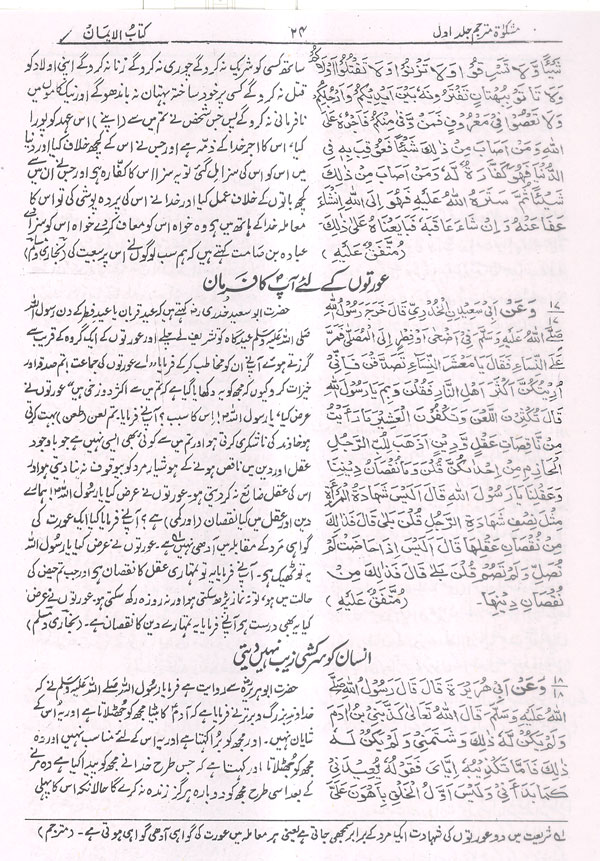 مشکوٰۃ مترجم جلد اول
۲۴
کتاب الایمان
شَيْئًا وَّلَا تَسْرِقُوْا وَلَا تَزْنُوْا وَلَا تَقْتُلُوْا اَوْلَادَكُمْ
وَلَا تَأْتُوْ بِبُهْتَانٍ تَفْتَرُوْنَهٗ بَيْنَ اَيْدِيْكُمْ وَاَرْجُلِكُمْ
وَلَا تَعْصُوْا فِىْ مَعْرُوْفٍ فَمَنْ وَفٰى مِنْكُمْ فَاَجْرُهٗ عَلَى
اللهِ وَمَنْ اَصَابَ مِنْ ذٰلِكَ شَيْئًا فَعُوْقِبَ بِهٖ فِى
الدُّنْيَا فَهُوَ كَفَّارَةٌ لَّهٗ وَمَنْ اَصَابَ مِنْ ذٰلِكَ
شَيْئًا ثُمَّ سَتَرَهُ اللهُ عَلَيْهِ فَهُوَ اِلَى اللهِ اِنْ شَاءَ
عَفَا عَنْهُ وَاِنْ شَاءَ عَاقَبَهٗ فَبَايَعْنَاهُ عَلٰى ذٰلِكَ
(مُتَّفَقٌ عَلَيْهِ)
ساتھ کسی کو شریک نہ کرو گے چوری نہ کرو گے زنا نہ کرو گے اپنی اولاد کو
قتل نہ کرو گے کسی پر خود ساختہ بہتان نہ باندھو گے اور نیک کاموں میں
نافرمانی نہ کرو گے پس جس شخص نے تم میں سے (اپنے) اس عہد کو پورا
کیا، اس کا اجر خدا کے ذمہ ہے اور جس نے اس کے کچھ خلاف کیا اور دنیا
میں اس کو اس کی سزا مل گئی تو یہ سزا اس کا کفارہ ہے اور جس نے ان میں سے
کچھ باتوں کے خلاف عمل کیا اور خدا نے اس کی پردہ پوشی کی تو اس کا
معاملہ خدا کے ہاتھ میں ہے وہ خواہ اس کو معاف کر دے خواہ اس کو سزا دے
عبادہ بن صامت کہتے ہیں کہ ہم سب لوگوں نے اس پر بیعت کی (بخاری و مسلم)
عورتوں کے لئے آپ کا فرمان
۱۷
۱۷
وَعَنْ اَبِىْ سَعِيْدِ الْخُدْرِىِّ قَالَ خَرَجَ رَسُوْلُ اللهِ
صَلَّى اللهُ عَلَيْهِ وَسَلَّمَ فِىْ اَضْحٰى اَوْ فِطْرٍ اِلَى الْمُصَلّٰى فَمَرَّ
عَلَى النِّسَاءِ فَقَالَ يَا مَعْشَرَ النِّسَاءِ تَصَدَّقْنَ فَاِنِّىْ
اُرِيْتُكُنَّ اَكْثَرَ اَهْلِ النَّارِ فَقُلْنَ وَبِمَ يَا رَسُوْلَ اللهِ
قَالَ تُكْثِرْنَ اللَّعْنَ وَتَكْفُرْنَ الْعَشِيْرَ مَا رَاَيْتُ
مِنْ نَّاقِصَاتِ عَقْلٍ وَّدِيْنٍ اَذْهَبَ لِلُبِّ الرَّجُلِ
الْحَازِمِ مِنْ اِحْدٰىكُنَّ قُلْنَ وَمَا نُقْصَانُ دِيْنِنَا
وَعَقْلِنَا يَا رَسُوْلَ اللهِ قَالَ اَلَيْسَ شَهَادَةُ الْمَرْأَةِ
مِثْلَ نِصْفِ شَهَادَةِ الرَّجُلِ قُلْنَ بَلٰى قَالَ فَذٰلِكَ
مِنْ نُقْصَانِ عَقْلِهَا قَالَ اَلَيْسَ اِذَا حَاضَتْ لَمْ
تُصَلِّ وَلَمْ تَصُمْ قُلْنَ بَلٰى قَالَ فَذٰلِكَ مِنْ
نُقْصَانِ دِيْنِهَا. (مُتَّفَقٌ عَلَيْهِ)
حضرت ابو سعید خدری رضؓ کہتے ہیں کہ عید قربان یا عید فطر کے دن رسول اللہ
صلی اللہ علیہ وسلم عیدگاہ کو تشریف لے چلے اور عورتوں کے ایک گروہ کے قریب سے
گزرتے ہوئے آپ نے ان کو مخاطب کر کے فرمایا۔ اے عورتوں کی جماعت! تم صدقہ اور
خیرات کرو کیوں کہ مجھ کو یہ دکھایا گیا ہے کہ تم میں سے اکثر دوزخی ہیں عورتوں نے
عرض کیا، یا رسول اللہ! اس کا سبب؟ آپ نے فرمایا، تم لعن (طعن) بہت کرتی
ہو خاوند کی ناشکری کرتی ہو اور تم میں سے کوئی بھی ایسی نہیں ہے جو باوجود
عقل اور دین میں ناقص ہونے کے ہوشیار مرد کو بیوقوف نہ بنا دیتی ہو اور
اس کی عقل ضائع نہ کر دیتی ہو۔ عورتوں نے عرض کیا یا رسول اللہ! ہمارے
دین اور عقل میں کیا نقصان (اور کمی) ہے؟ آپ نے فرمایا کیا ایک عورت کی
گواہی مرد کے مقابلہ میں آدھی نہیں ہے۔ عورتوں نے عرض کیا یا رسول اللہ
یہ تو ٹھیک ہے۔ آپ نے فرمایا یہ تو تمہاری عقل کا نقصان ہے اور جب تم حیض کی
حالت میں ہو، تو نہ نماز پڑھ سکتی ہو اور نہ روزہ رکھ سکتی ہو۔ عورتوں نے عرض
کیا یہ بھی درست ہے آپ نے فرمایا یہ تمہارے دین کا نقصان ہے۔ (بخاری و مسلم)
انسان کو سرکشی زیب نہیں دیتی
۱۸
۱۸
وَعَنْ اَبِىْ هُرَيْرَةَ قَالَ قَالَ رَسُوْلُ اللهِ صَلَّى
اللهُ عَلَيْهِ وَسَلَّمَ قَالَ اللهُ تَعَالٰى كَذَّبَنِىْ بْنُ اٰدَمَ
وَلَمْ يَكُنْ لَّهٗ ذٰلِكَ وَشَتَمَنِىْ وَلَمْ يَكُنْ لَّهٗ
ذٰلِكَ فَاَمَّا تَكْذِيْبُهٗ اِيَّاىَ فَقَوْلُهٗ لَنْ يُّعِيْدَنِىْ
كَمَا بَدَاَنِىْ وَلَيْسَ اَوَّلُ الْخَلْقِ بِاَهْوَنَ عَلَىَّ
حضرت ابوہریرہ رضؓ سے روایت ہے فرمایا رسول اللہ صلے اللہ علیہ وسلم نے کہ
خداوند بزرگ و برتر نے فرمایا ہے کہ آدم کا بیٹا مجھ کو جھٹلاتا ہے اور یہ اس کے
شایان نہیں۔ اور مجھ کو برا کہتا ہے اور یہ اس کے لئے مناسب نہیں اور وہ
مجھ کو جھٹلاتا اور کہتا ہے کہ جس طرح خدا نے مجھ کو پیدا کیا ہے وہ مرنے
کے بعد اسی طرح مجھ کو دوبارہ ہرگز زندہ نہ کرے گا حالانکہ اس کا پہلی
لہ شریعت میں دو عورتوں کی شہادت ایک مرد کے برابر سمجھی جاتی ہے یعنی ہر معاملہ میں عورت کی گواہی آدھی گواہی ہوتی ہے۔ (مترجم)